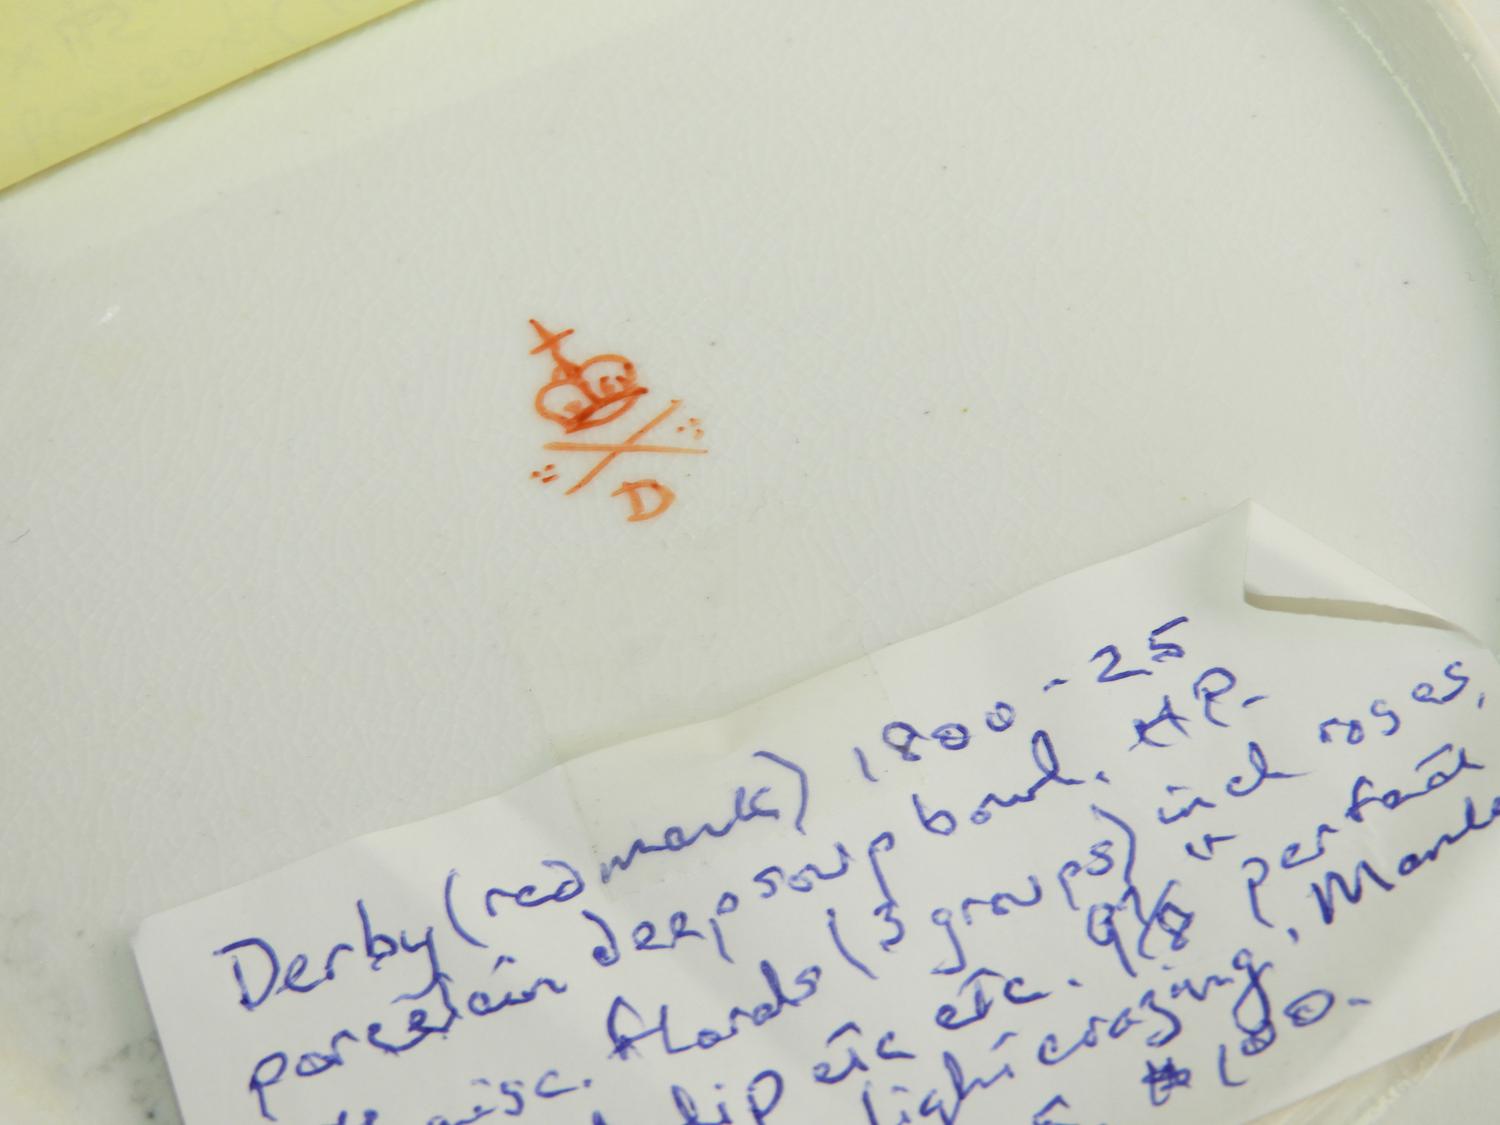 D
Derby (red mark) 1800-25
porcelain deep soup bowl. HP.
misc. florals (3 groups) incl roses,
lip etc etc. 9 1/8" perfect
light crazing,
100-